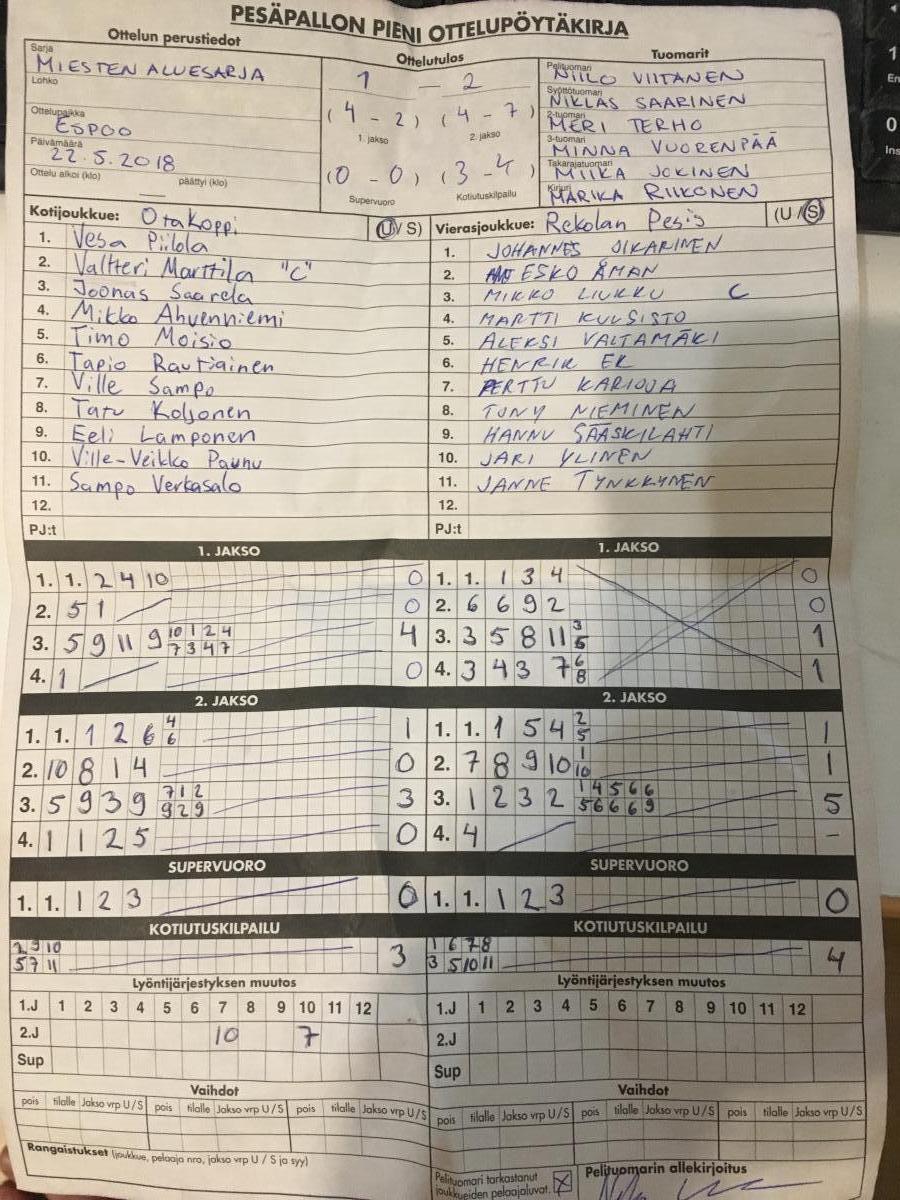 PESÄPALLON PIENI OTTELUPÖYTÄKIRJA
Ottelun perustiedot
Sarja
MIESTEN ALUESARJA
Lohko
Ottelupaikka
ESPOO
Päivämäärä
22.5.2018
Ottelu alkoi (klo) päättyi (klo)
Ottelutulos
1 – 2
(4 - 2) (4 - 7)
1. jakso 2. jakso
(0 - 0) (3 - 4)
Supervuoro Kotiutuskilpailu
Tuomarit
Pelituomari
NIILO VIITANEN
Syöttötuomari
NIKLAS SAARINEN
2-tuomari
MERI TERHO
3-tuomari
MINNA VUORENPÄÄ
Takarajatuomari
MIIKA JOKINEN
Kirjuri
MARIKA RIIKONEN
Kotijoukkue: Otakoppi (U/S)
1. Vesa Piilola
2. Valtteri Marttila "C"
3. Joonas Saarela
4. Mikko Ahvenniemi
5. Timo Moisio
6. Tapio Rautiainen
7. Ville Sampo
8. Tatu Koljonen
9. Eeli Lamponen
10. Ville-Veikko Paunu
11. Sampo Verkasalo
12.
PJ:t
Vierasjoukkue: Rekolan Pesis (U/S)
1. JOHANNES OIKARINEN
2. ESKO ÅMAN
3. MIKKO LIUKKU C
4. MARTTI KULSISTO
5. ALEKSI VALTAMÄKI
6. HENRIK EK
7. PERTTU KARIOJA
8. TONY NIEMINEN
9. HANNU SÄÄSKILAHTI
10. JARI YLINEN
11. JANNE TYNKKYNEN
12.
PJ:t
1. JAKSO
1. 1. 2 4 10 0
2. 5 1 0
3. 5 9 11 9 10 1 2 4 4
7 3 4 7
4. 1 0
1. JAKSO
1. 1. 1 3 4 0
2. 6 6 9 2 0
3. 3 5 8 11 3 1
5
4. 3 4 3 7 6 1
8
2. JAKSO
1. 1. 1 2 6 4 1
6
2. 10 8 1 4 0
3. 5 9 3 9 7 1 2 3
9 2 9
4. 1 1 2 5 0
2. JAKSO
1. 1. 1 5 4 2 1
5
2. 7 8 9 10 1 1
10
3. 1 2 3 2 1 4 5 6 6 5
5 6 6 6 9
4. 4 –
SUPERVUORO
1. 1. 1 2 3 0
SUPERVUORO
1. 1. 1 2 3 0
KOTIUTUSKILPAILU
2 9 10 3
5 7 11
KOTIUTUSKILPAILU
1 6 7 8 4
3 5 10 11
Lyöntijärjestyksen muutos
1.J 1 2 3 4 5 6 7 8 9 10 11 12
2.J 10 7
Sup
Lyöntijärjestyksen muutos
1.J 1 2 3 4 5 6 7 8 9 10 11 12
2.J
Sup
Vaihdot
pois tilalle Jakso vrp U/S pois tilalle Jakso vrp U/S pois tilalle Jakso vrp U/S
Vaihdot
pois tilalle Jakso vrp U/S pois tilalle Jakso vrp U/S pois tilalle Jakso vrp U/S
Rangaistukset (joukkue, pelaaja nro, jakso vrp U / S ja syy)
Pelituomari tarkastanut
joukkueiden pelaajaluvat. X
Pelituomarin allekirjoitus